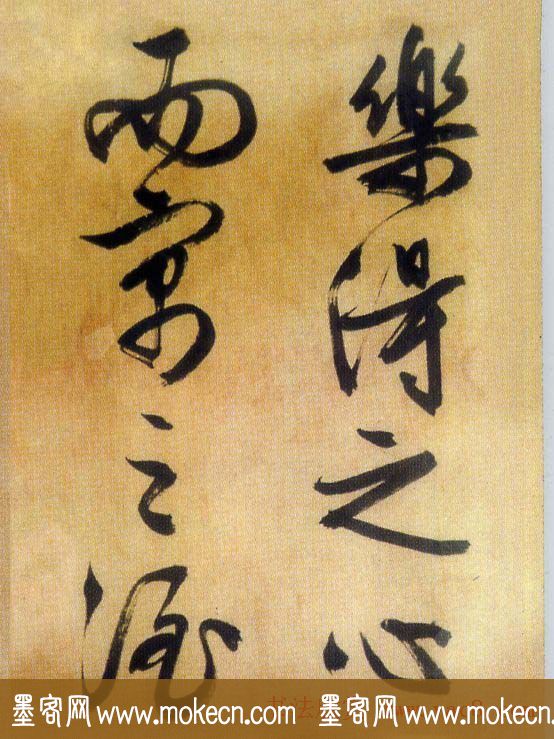 樂得之心
而寓之酒
墨客网 www.mokecn.com 墨客网 www.mokecn.com